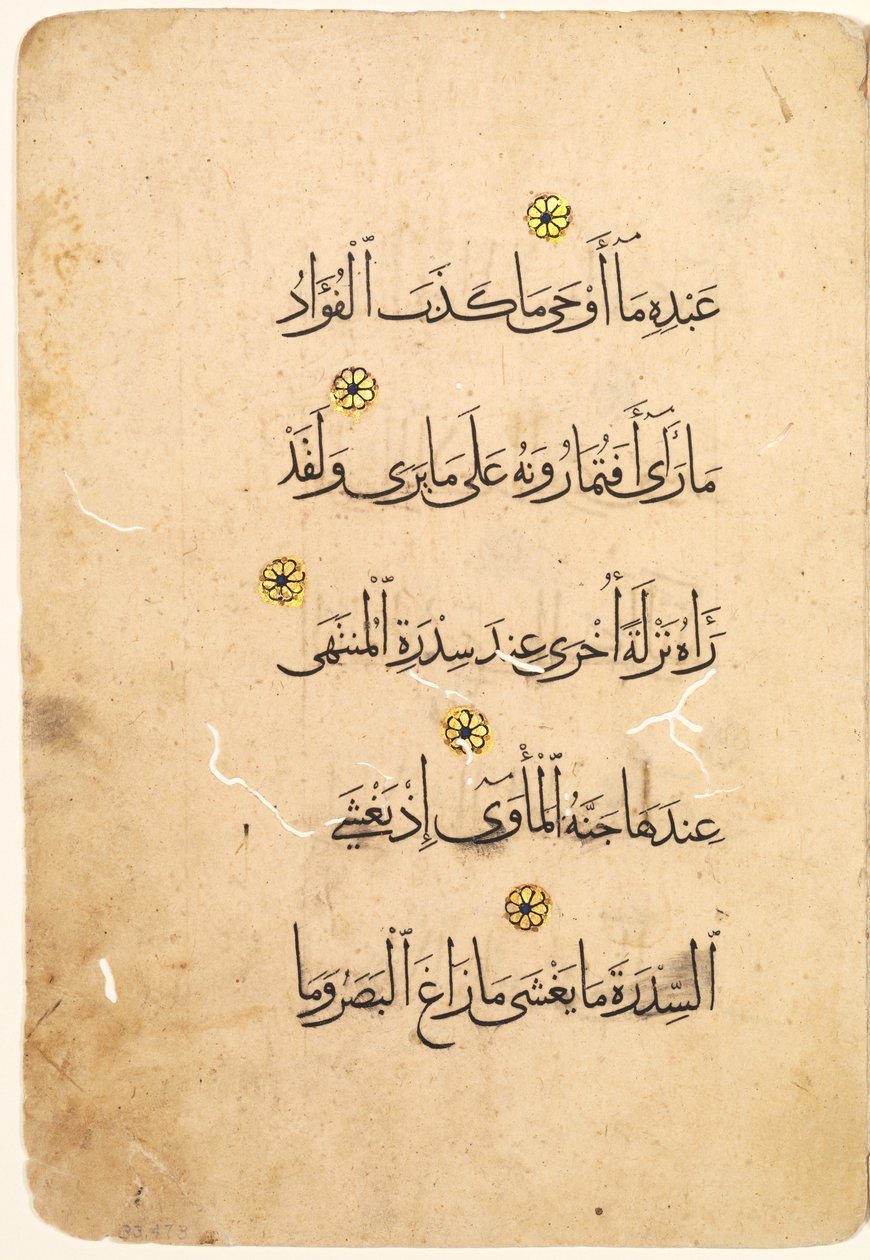 عَبْدِهِ مَآ أَوْحَى مَا كَذَبَ ٱلْفُؤَادُ
مَا رَأَى أَفَتُمَارُونَهُ عَلَى مَا يَرَى وَلَقَدْ
رَآهُ نَزْلَةً أُخْرَى عِندَ سِدْرَةِ ٱلْمُنتَهَى
عِندَهَا جَنَّةُ ٱلْمَأْوَى إِذْ يَغْشَى
ٱلسِّدْرَةَ مَا يَغْشَى مَا زَاغَ ٱلْبَصَرُ وَمَا
33.473